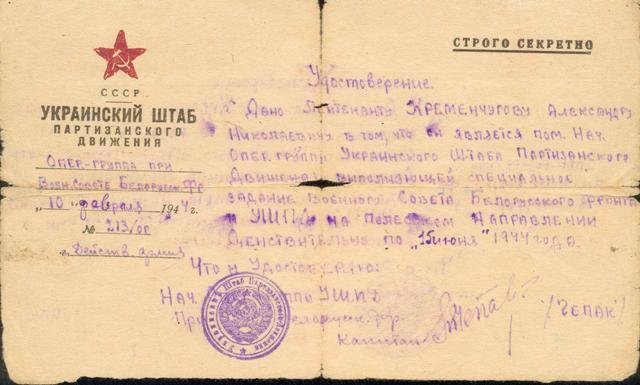 СТРОГО СЕКРЕТНО
СССР
УКРАИНСКИЙ ШТАБ
ПАРТИЗАНСКОГО
ДВИЖЕНИЯ
ОПЕР-ГРУППА ПРИ
ВОЕН.СОВЕТЕ БЕЛОРУССК. ФР
„10" февраля 1944 г.
№ 213/ос
г. Действ. армия
Удостоверение.
Дано Лейтенанту КРЕМЕНЧУГОВУ АЛЕКСАНДРУ
НИКОЛАЕВИЧУ в том, что он является пом. Нач.
ОПЕР.ГРУППЫ УКРАИНСКОГО ШТАБА ПАРТИЗАНСКОГО
ДВИЖЕНИЯ ВЫПОЛНЯЮЩЕЙ СПЕЦИАЛЬНОЕ
ЗАДАНИЕ ВОЕННОГО СОВЕТА БЕЛОРУССКОГО ФРОНТА
И УШПД НА ПОЛЕССКОМ НАПРАВЛЕНИИ
ДЕЙСТВИТЕЛЬНО ПО „15 июня" 1944 ГОДА.
ЧТО И УДОСТОВЕРЯЮ:
НАЧ. УШПД
КАПИТАН
/ЧЕПАК/
Украинский Штаб Партизанского Движения